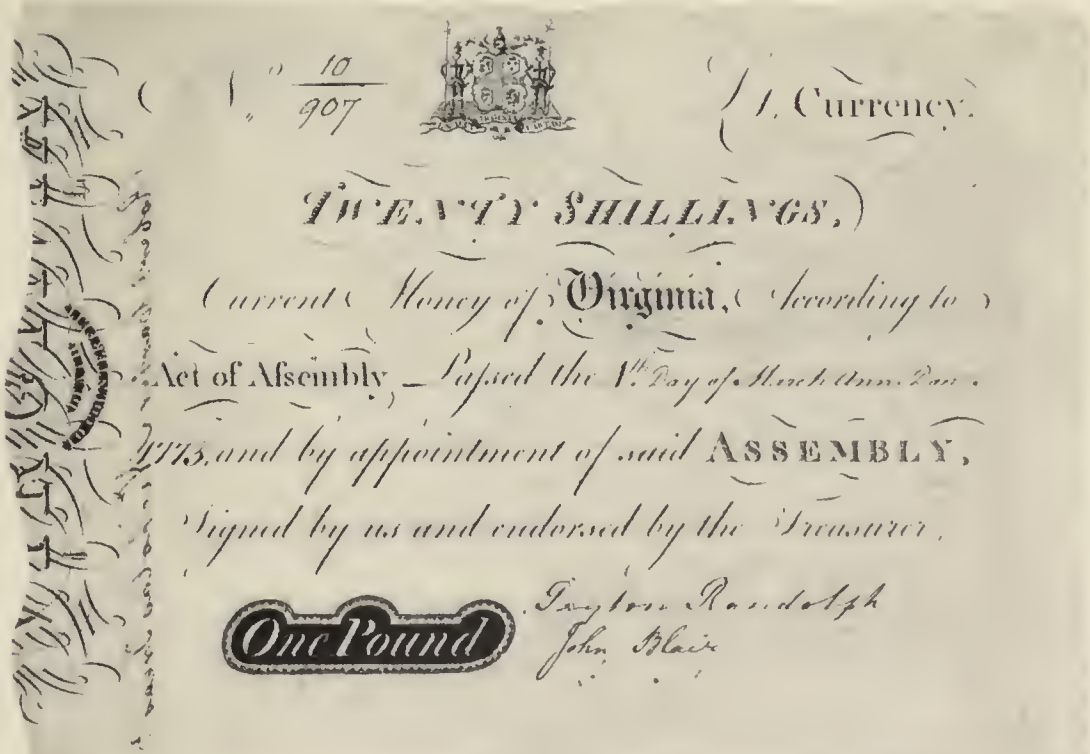 10
907
1, Currency.
TWENTY SHILLINGS,
Current Money of Virginia, According to
Act of Aſsembly, Paſsed the 4th. Day of March Ann. Dom.
1773, and by appointment of said ASSEMBLY,
Signed by us and endorsed by the Treasurer.
One Pound
Peyton Randolph
John Blair